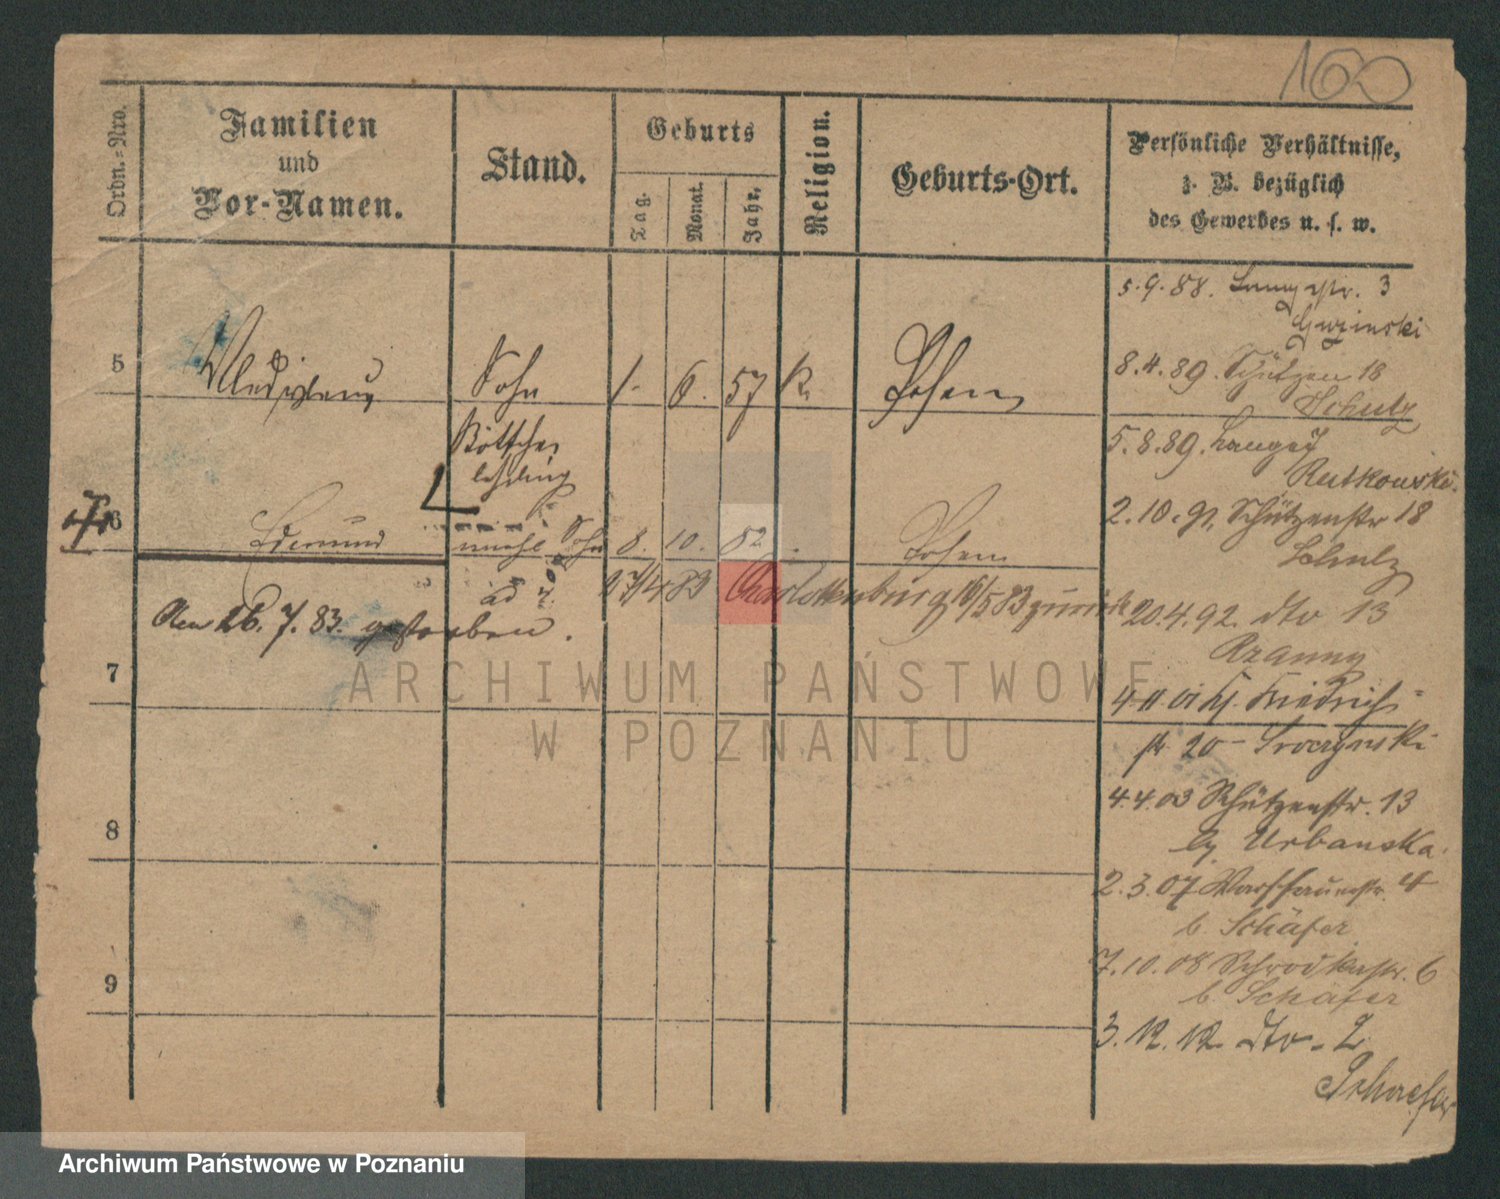 160
Ordn.-Nro.
Familien
und
Vor-Namen.
Stand.
Geburts
Tag.
Monat.
Jahr.
Religion.
Geburts-Ort.
Persönliche Verhältnisse,
z. B. bezüglich
des Gewerbes u. s. w.
5
Sohn
1. 6. 57
K.
Posen
Böttcher
lehrling
6
Edmund
Sohn
8. 10.
Posen
27/4 83 Charlottenburg 16/5 83 zurück
Am 26. 7. 83. gestorben.
7
8
9
5.9.88. Langestr. 3
8.4.89. Schützen 18
Schulz
5.8.89. Langes 7
Rutkowski.
2.10.91. Schützenstr 18
Schulz
20.4.92. dto 13
Rzanny
4.11.01 Friedrich-
str 20 Sroczynski
4.4.03 Schützenstr. 13
Urbanska.
2.3.07 Warschauerstr. 4
b. Schäfer
7.10.08 Schrodkastr. 6
b. Schäfer
3.12.12 dto. 2
Schaefer
ARCHIWUM PAŃSTWOWE
W POZNANIU
Archiwum Państwowe w Poznaniu